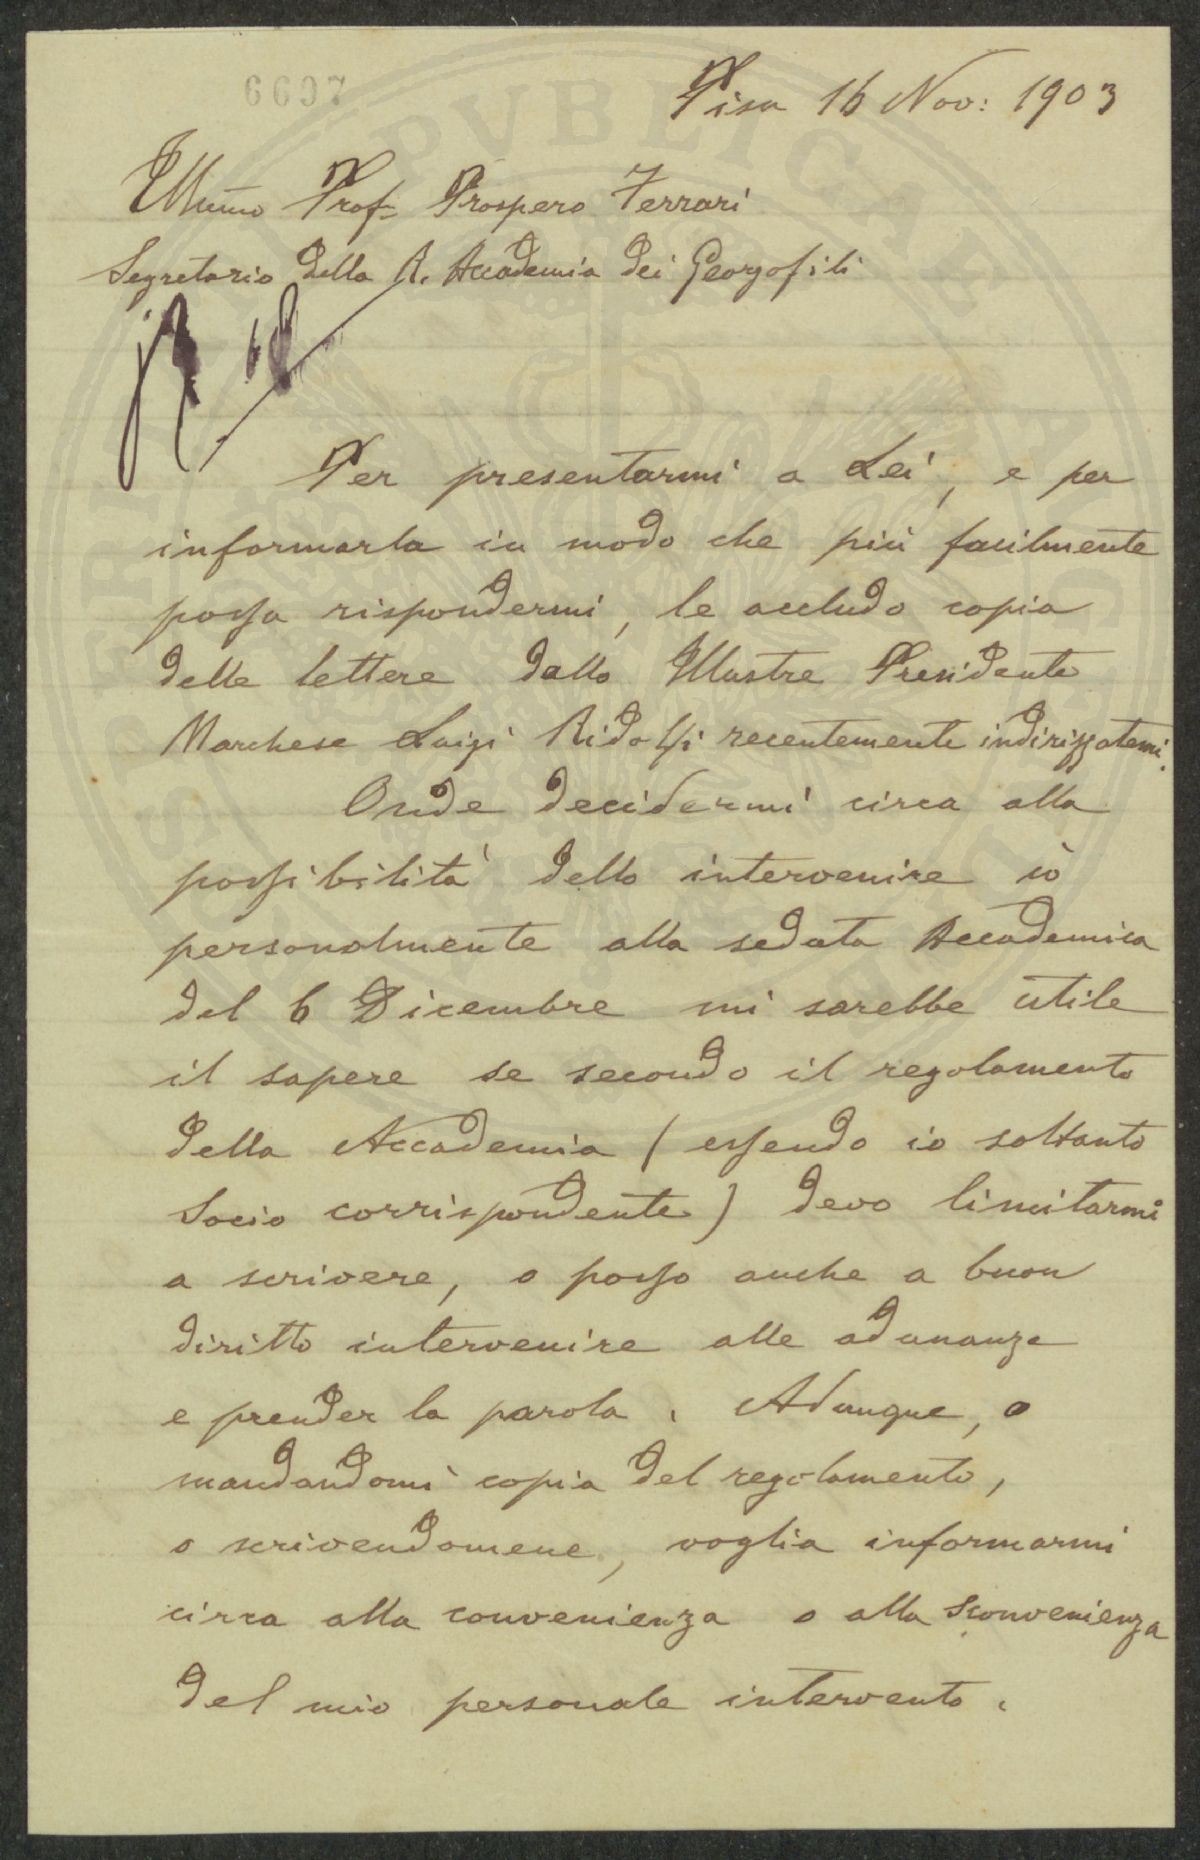 6607
Pisa 16 Nov: 1903
Illmo Prof. Prospero Ferrari
Segretario della R. Accademia dei Georgofili
Per presentarmi a Lei, e per
informarla in modo che più facilmente
possa rispondermi, le accludo copia
delle lettere dallo Illustre Presidente
Marchese Luigi Ridolfi recentemente indirizzatemi.
Onde decidermi circa alla
possibilità dello intervenire io
personalmente alla seduta Accademica
del 6 Dicembre mi sarebbe utile
il sapere se secondo il regolamento
della Accademia (essendo io soltanto
Socio corrispondente) devo limitarmi
a scrivere, o posso anche a buon
diritto intervenire alle adunanze
e prender la parola. Adunque, o
mandandomi copia del regolamento,
o scrivendomene, voglia informarmi
circa alla convenienza o alla sconvenienza
del mio personale intervento.